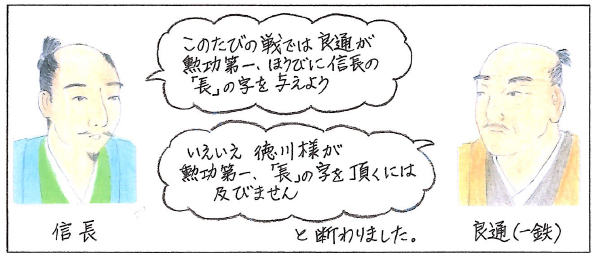 このたびの戦では良通が
勲功第一、ほうびに信長の
「長」の字を与えよう
いえいえ 徳川様が
勲功第一、「長」の字を頂くには
及びません
と断わりました。
信長
良通(一鉄)